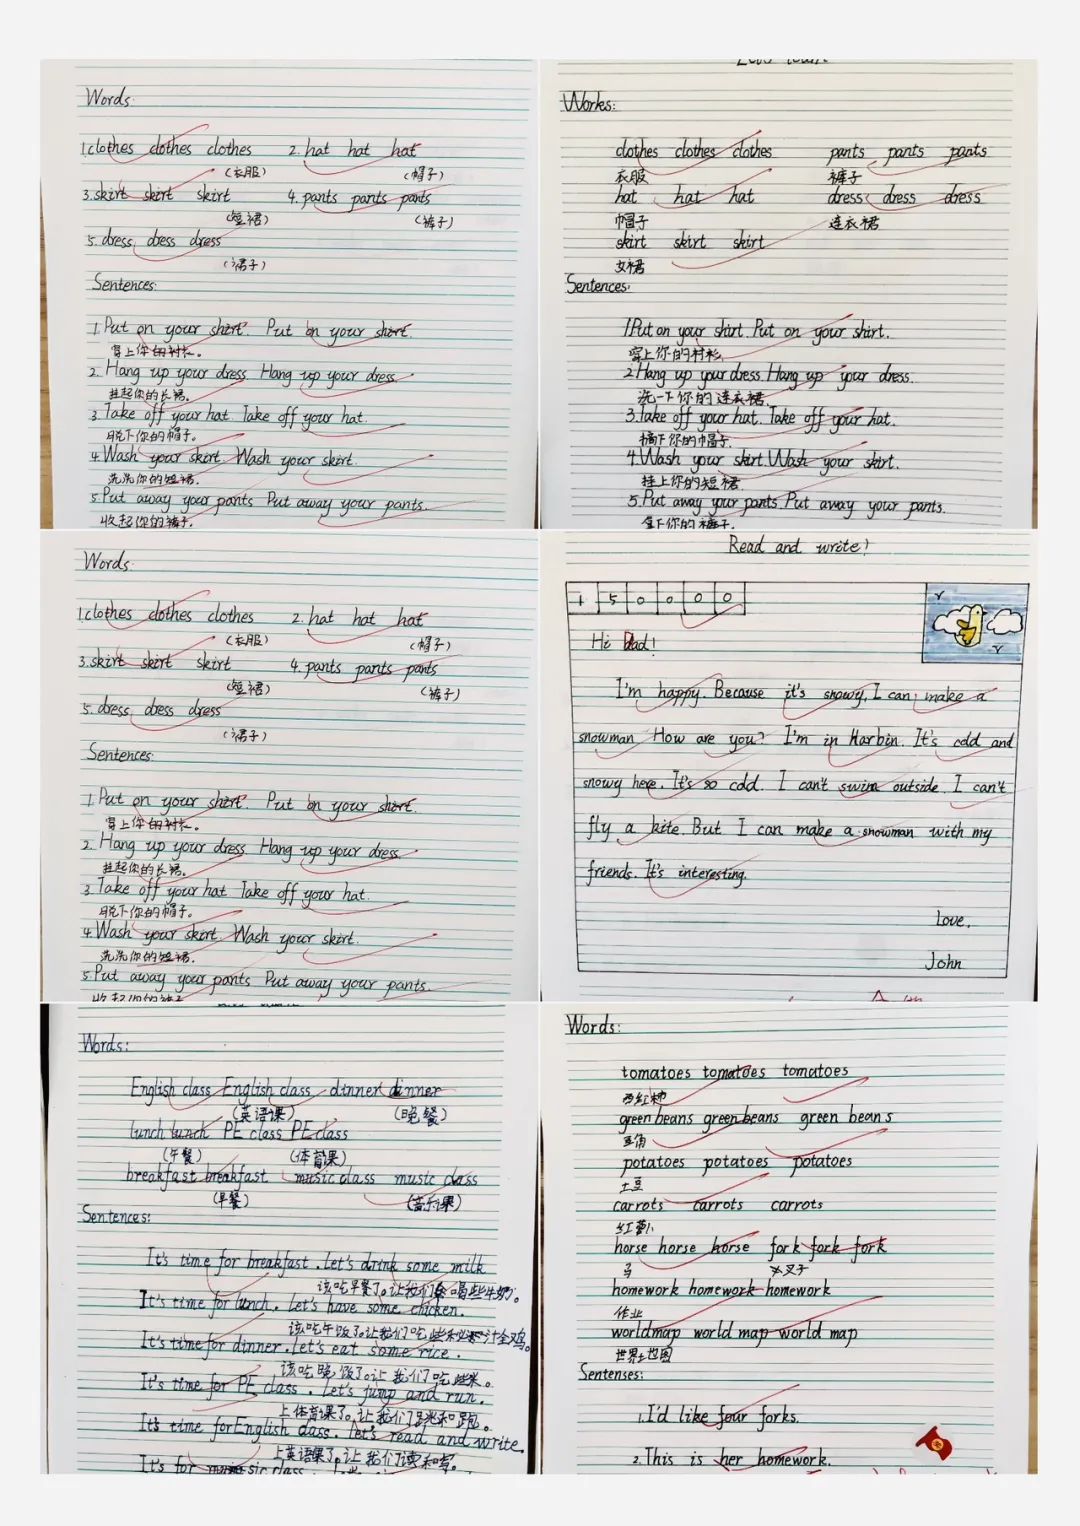 Words
1.clothes clothes clothes 2. hat hat hat
(衣服) (帽子)
3.skirt skirt skirt 4. pants pants pants
(短裙) (裤子)
5. dress dress dress
(裙子)
Sentences:
1.Put on your shirt. Put on your shirt.
穿上你的衬衫。
2. Hang up your dress Hang up your dress.
挂起你的长裙。
3. Take off your hat Take off your hat.
脱下你的帽子。
4.Wash your skirt. Wash your skirt.
洗洗你的短裙.
5.Put away your pants Put away your pants.
收起你的裤子.
Works:
clothes clothes clothes pants pants pants
衣服 裤子
hat hat hat dress dress dress
帽子 连衣裙
skirt skirt skirt
女裙
Sentences:
1Put on your shirt.Put on your shirt.
穿上你的衬衫.
2Hang up your dress.Hang up your dress.
洗一下你的连衣裙.
3.Take off your hat. Take off your hat.
摘下你的帽子.
4.Wash your skirt.Wash your skirt.
挂上你的短裙
5.Put away your pants.Put away your pants.
拿下你的裤子.
Words
1.clothes clothes clothes 2. hat hat hat
(衣服) (帽子)
3.skirt skirt skirt 4. pants pants pants
(短裙) (裤子)
5. dress dress dress
(裙子)
Sentences:
1.Put on your shirt. Put on your shirt.
穿上你的衬衫。
2. Hang up your dress Hang up your dress.
挂起你的长裙。
3 Take off your hat Take off your hat.
脱下你的帽子。
4.Wash your skirt. Wash your skirt.
洗洗你的短裙.
5.Put away your pants Put away your pants.
收起你的裤子
Read and write!
1 5 0 0 0 0
Hi Dad!
I'm happy. Because it's snowy, I can make a
snowman How are you? I'm in Harbin. It's cold and
snowy here. It's so cold. I can't swim outside. I can't
fly a kite. But I can make a snowman with my
friends. It's interesting.
Love,
John
Words:
English class English class dinner dinner
(英语课) (晚餐)
lunch lunch PE class PE class
(午餐) (体育课)
breakfast breakfast music class music class
(早餐) (音乐课)
Sentences:
It's time for breakfast. Let's drink some milk
该吃早餐了。让我们喝些牛奶。
It's time for lunch. Let's have some chicken.
该吃午饭了。让我们吃些鸡。
It's time for dinner. Let's eat some rice.
该吃晚饭了。让我们吃些米。
It's time for PE class. Let's jump and run.
上体育课了。让我们跳和跑。
It's time for English class. Let's read and write.
上英语课了。让我们读和写。
It's for music class.
Words:
tomatoes tomatoes tomatoes
西红柿
green beans green beans green beans
豆角
potatoes potatoes potatoes
土豆
carrots carrots carrots
红萝卜
horse horse horse fork fork fork
马 叉子
homework homework homework
作业
worldmap world map world map
世界地图
Sentenses:
1.I'd like four forks.
2.This is her homework.